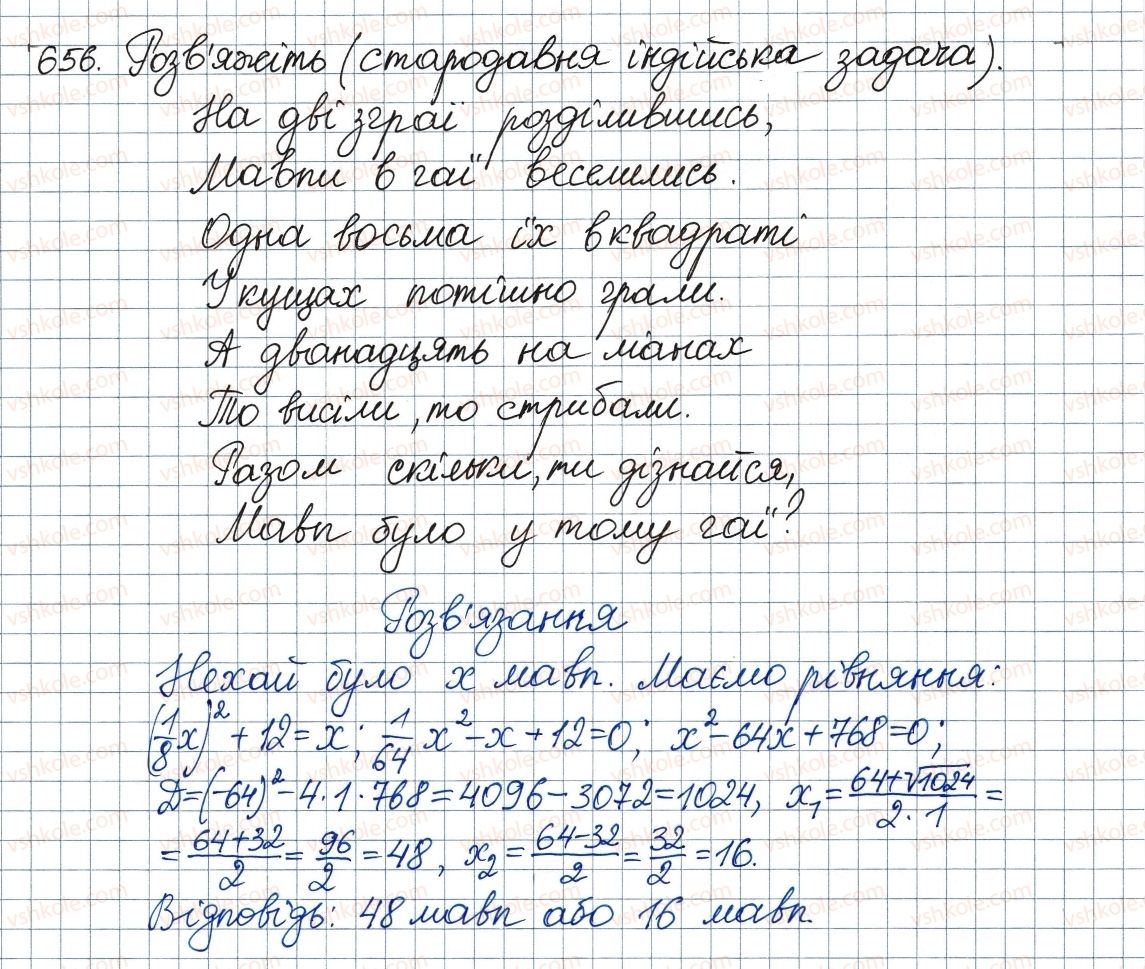 656. Розв'яжіть (стародавня індійська задача).
На дві зграї розділившись,
Мавпи в гаї веселились.
Одна восьма їх в квадраті
У кущах потішно грали.
А дванадцять на ліанах
То висіли, то стрибали.
Разом скільки, ти дізнайся,
Мавп було у тому гаї?
Розв'язання
Нехай було x мавп. Маємо рівняння:
(1/8 x)² + 12 = x; 1/64 x² - x + 12 = 0; x² - 64x + 768 = 0;
D = (-64)² - 4·1·768 = 4096 - 3072 = 1024, x₁ = (64+√1024)/(2·1) =
= (64+32)/2 = 96/2 = 48, x₂ = (64-32)/2 = 32/2 = 16.
Відповідь: 48 мавп або 16 мавп.